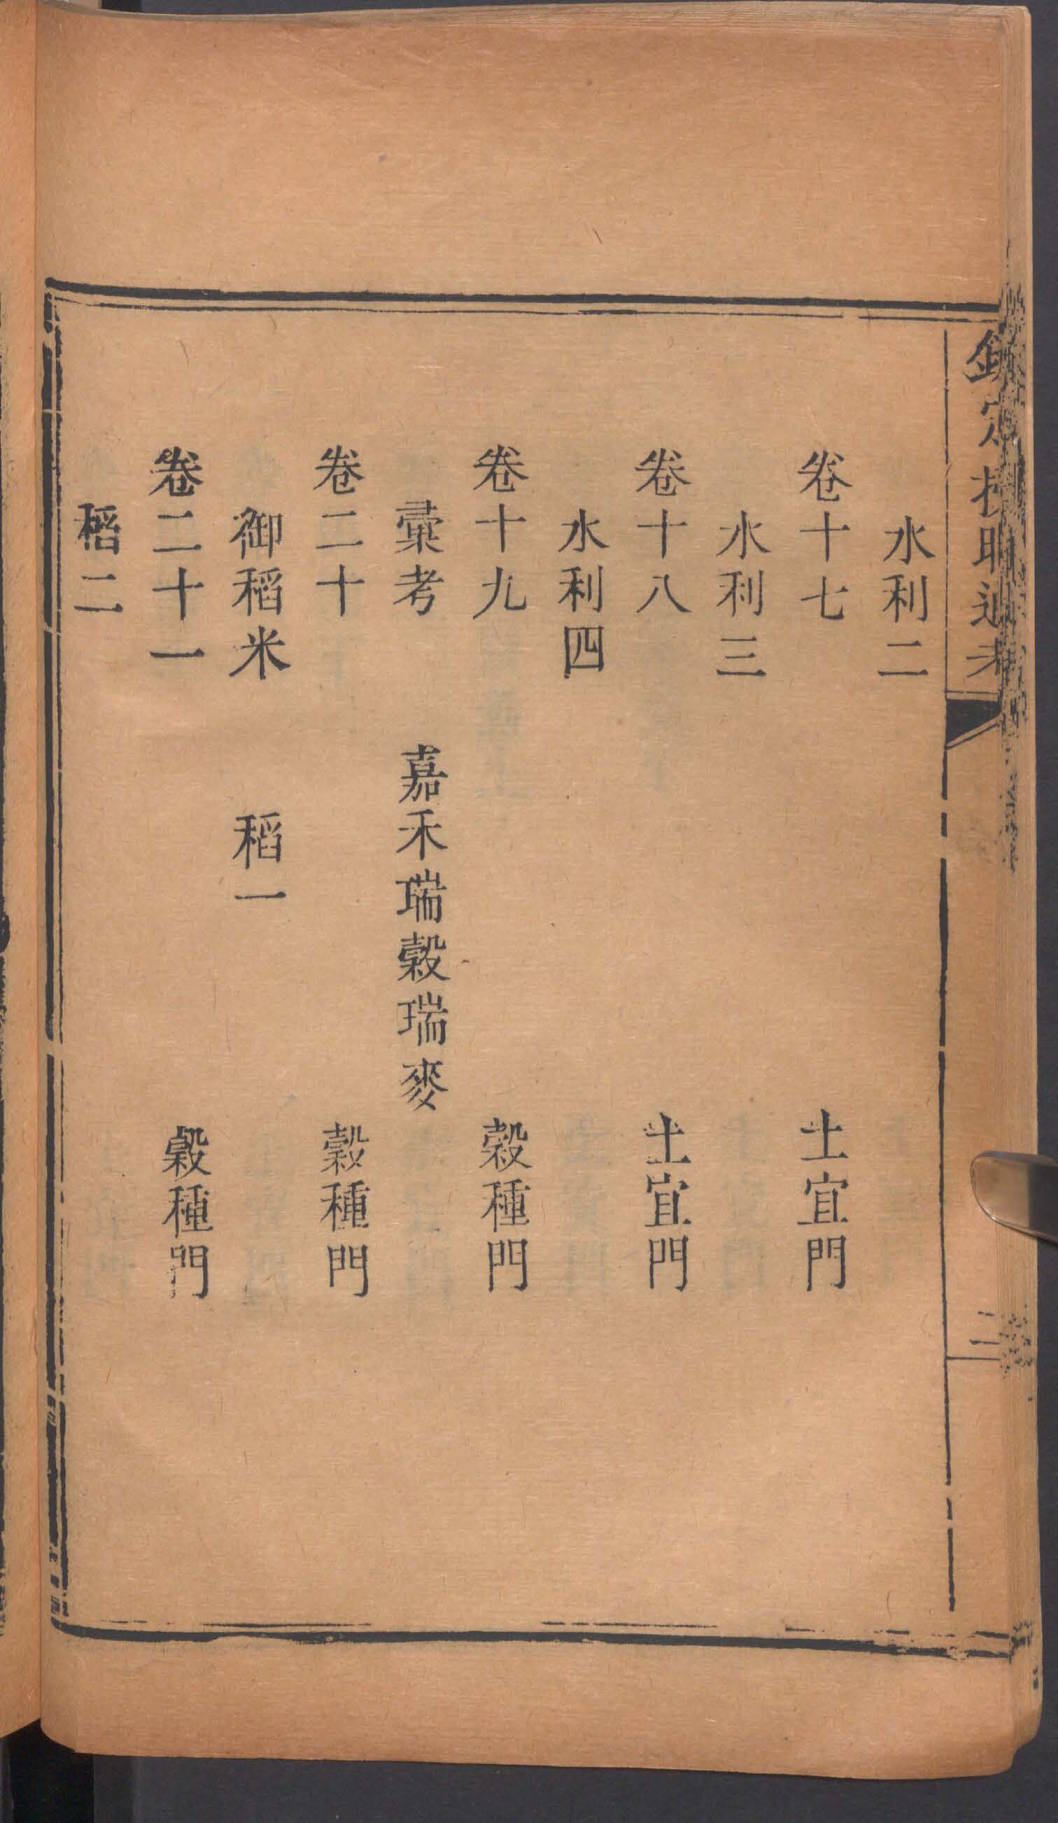 欽定授時通考
水利二
卷十七 土宜門
水利三
卷十八 土宜門
水利四
卷十九 穀種門
彚考 嘉禾瑞穀瑞麥
卷二十 穀種門
御稻米 稻一
卷二十一 穀種門
稻二
二